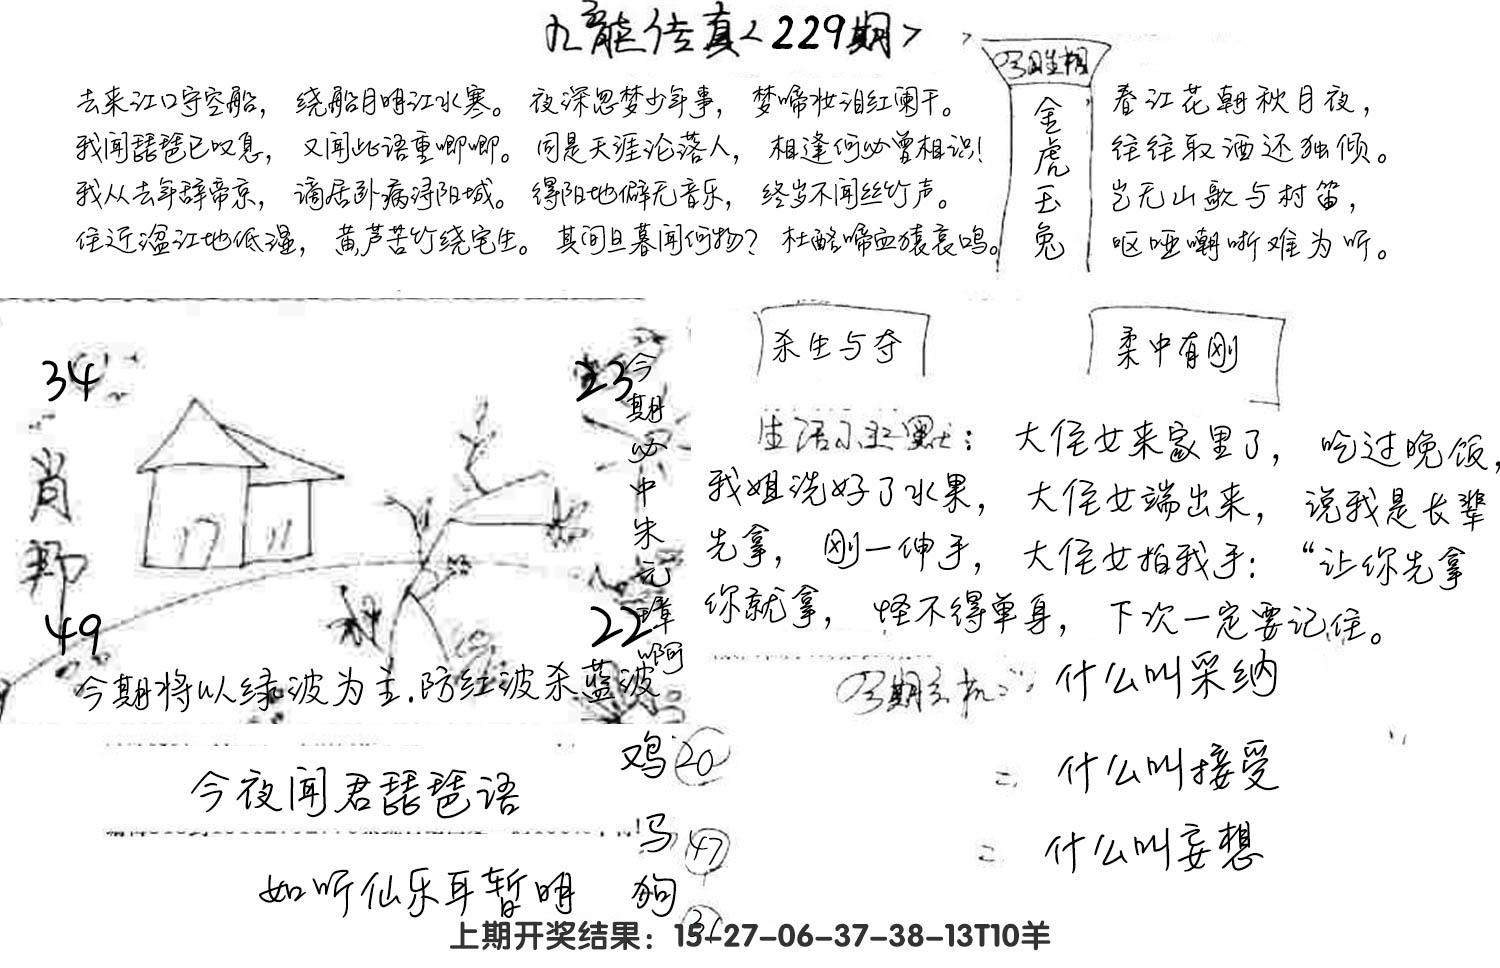 九龍传真<229期>
去来江口守空船，绕船月明江水寒。夜深忽梦少年事，梦啼妆泪红阑干。
我闻琵琶已叹息，又闻此语重唧唧。同是天涯沦落人，相逢何必曾相识！
我从去年辞帝京，谪居卧病浔阳城。浔阳地僻无音乐，终岁不闻丝竹声。
住近湓江地低湿，黄芦苦竹绕宅生。其间旦暮闻何物？杜鹃啼血猿哀鸣。
金虎玉兔
春江花朝秋月夜，
往往取酒还独倾。
岂无山歌与村笛，
呕哑嘲哳难为听。
34
23
肖
49
22
今期必中朱元璋啊
今期将以绿波为主.防红波杀蓝波
杀生与夺
柔中有刚
大侄女来家里了，吃过晚饭，
我姐洗好了水果，大侄女端出来，说我是长辈
先拿，刚一伸手，大侄女拍我手：“让你先拿
你就拿，怪不得单身，下次一定要记住。
什么叫采纳
什么叫接受
什么叫妄想
今夜闻君琵琶语
如听仙乐耳暂明
鸡 20
马 47
狗
上期开奖结果：15-27-06-37-38-13T10羊